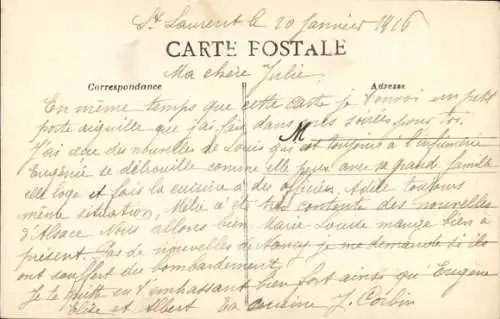 St Laurent le 20 Janvier 1916
CARTE POSTALE
Ma chère Julie
Correspondance
Adresse
En même temps que cette carte je t'envoi un petit
porte aiguille que j'ai fais dans mes soirées pour toi.
M
J'ai eue des nouvelles de Louis qui est toujours à l'infirmerie
Eugénie se débrouille comme elle peux avec sa grande famille
elle loge et fais la cuisine à des officiers. Adèle toujours
même situation, Mélie a été très contente des nouvelles
d'Alsace. Nous allons bien. Marie Louise mange bien à
présent. Pas de nouvelles de Nancy je me demande si ils
ont souffert du bombardement
Je te quitte en t'embrassant bien fort ainsi qu'Eugène
Elise et Albert Ta cousine J. Corbin